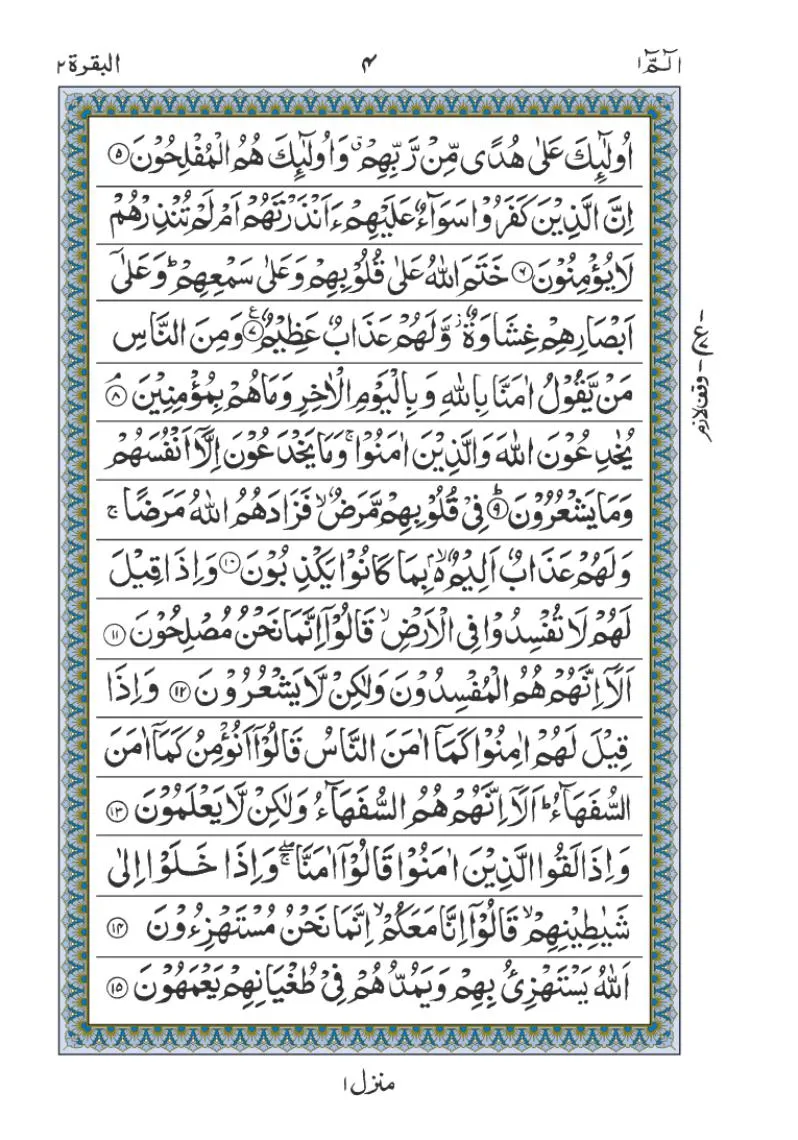 الٓمّٓ ۱
۴
البقرة ۲
اُولٰٓئِكَ عَلٰى هُدًى مِّنْ رَّبِّهِمْ ۙ وَاُولٰٓئِكَ هُمُ الْمُفْلِحُوْنَ ۵
اِنَّ الَّذِيْنَ كَفَرُوْا سَوَآءٌ عَلَيْهِمْ ءَاَنْذَرْتَهُمْ اَمْ لَمْ تُنْذِرْهُمْ
لَا يُؤْمِنُوْنَ ۶ خَتَمَ اللّٰهُ عَلٰى قُلُوْبِهِمْ وَعَلٰى سَمْعِهِمْ ؕ وَعَلٰٓى
اَبْصَارِهِمْ غِشَاوَةٌ ز وَّلَهُمْ عَذَابٌ عَظِيْمٌ ۷ ع وَمِنَ النَّاسِ
مَنْ يَّقُوْلُ اٰمَنَّا بِاللّٰهِ وَبِالْيَوْمِ الْاٰخِرِ وَمَا هُمْ بِمُؤْمِنِيْنَ ۸ م
يُخٰدِعُوْنَ اللّٰهَ وَالَّذِيْنَ اٰمَنُوْا ۚ وَمَا يَخْدَعُوْنَ اِلَّآ اَنْفُسَهُمْ
وَمَا يَشْعُرُوْنَ ۹ ؕ فِيْ قُلُوْبِهِمْ مَّرَضٌ ۙ فَزَادَهُمُ اللّٰهُ مَرَضًا ۚ
وَلَهُمْ عَذَابٌ اَلِيْمٌ ۢ ۙ بِمَا كَانُوْا يَكْذِبُوْنَ ۱۰ وَاِذَا قِيْلَ
لَهُمْ لَا تُفْسِدُوْا فِى الْاَرْضِ ۙ قَالُوْٓا اِنَّمَا نَحْنُ مُصْلِحُوْنَ ۱۱
اَلَآ اِنَّهُمْ هُمُ الْمُفْسِدُوْنَ وَلٰكِنْ لَّا يَشْعُرُوْنَ ۱۲ وَاِذَا
قِيْلَ لَهُمْ اٰمِنُوْا كَمَآ اٰمَنَ النَّاسُ قَالُوْٓا اَنُؤْمِنُ كَمَآ اٰمَنَ
السُّفَهَآءُ ؕ اَلَآ اِنَّهُمْ هُمُ السُّفَهَآءُ وَلٰكِنْ لَّا يَعْلَمُوْنَ ۱۳
وَاِذَا لَقُوا الَّذِيْنَ اٰمَنُوْا قَالُوْٓا اٰمَنَّا ۖۚ وَاِذَا خَلَوْا اِلٰى
شَيٰطِيْنِهِمْ ۙ قَالُوْٓا اِنَّا مَعَكُمْ ۙ اِنَّمَا نَحْنُ مُسْتَهْزِءُوْنَ ۱۴
اَللّٰهُ يَسْتَهْزِئُ بِهِمْ وَيَمُدُّهُمْ فِيْ طُغْيَانِهِمْ يَعْمَهُوْنَ ۱۵
وقف لازم
منزل ۱